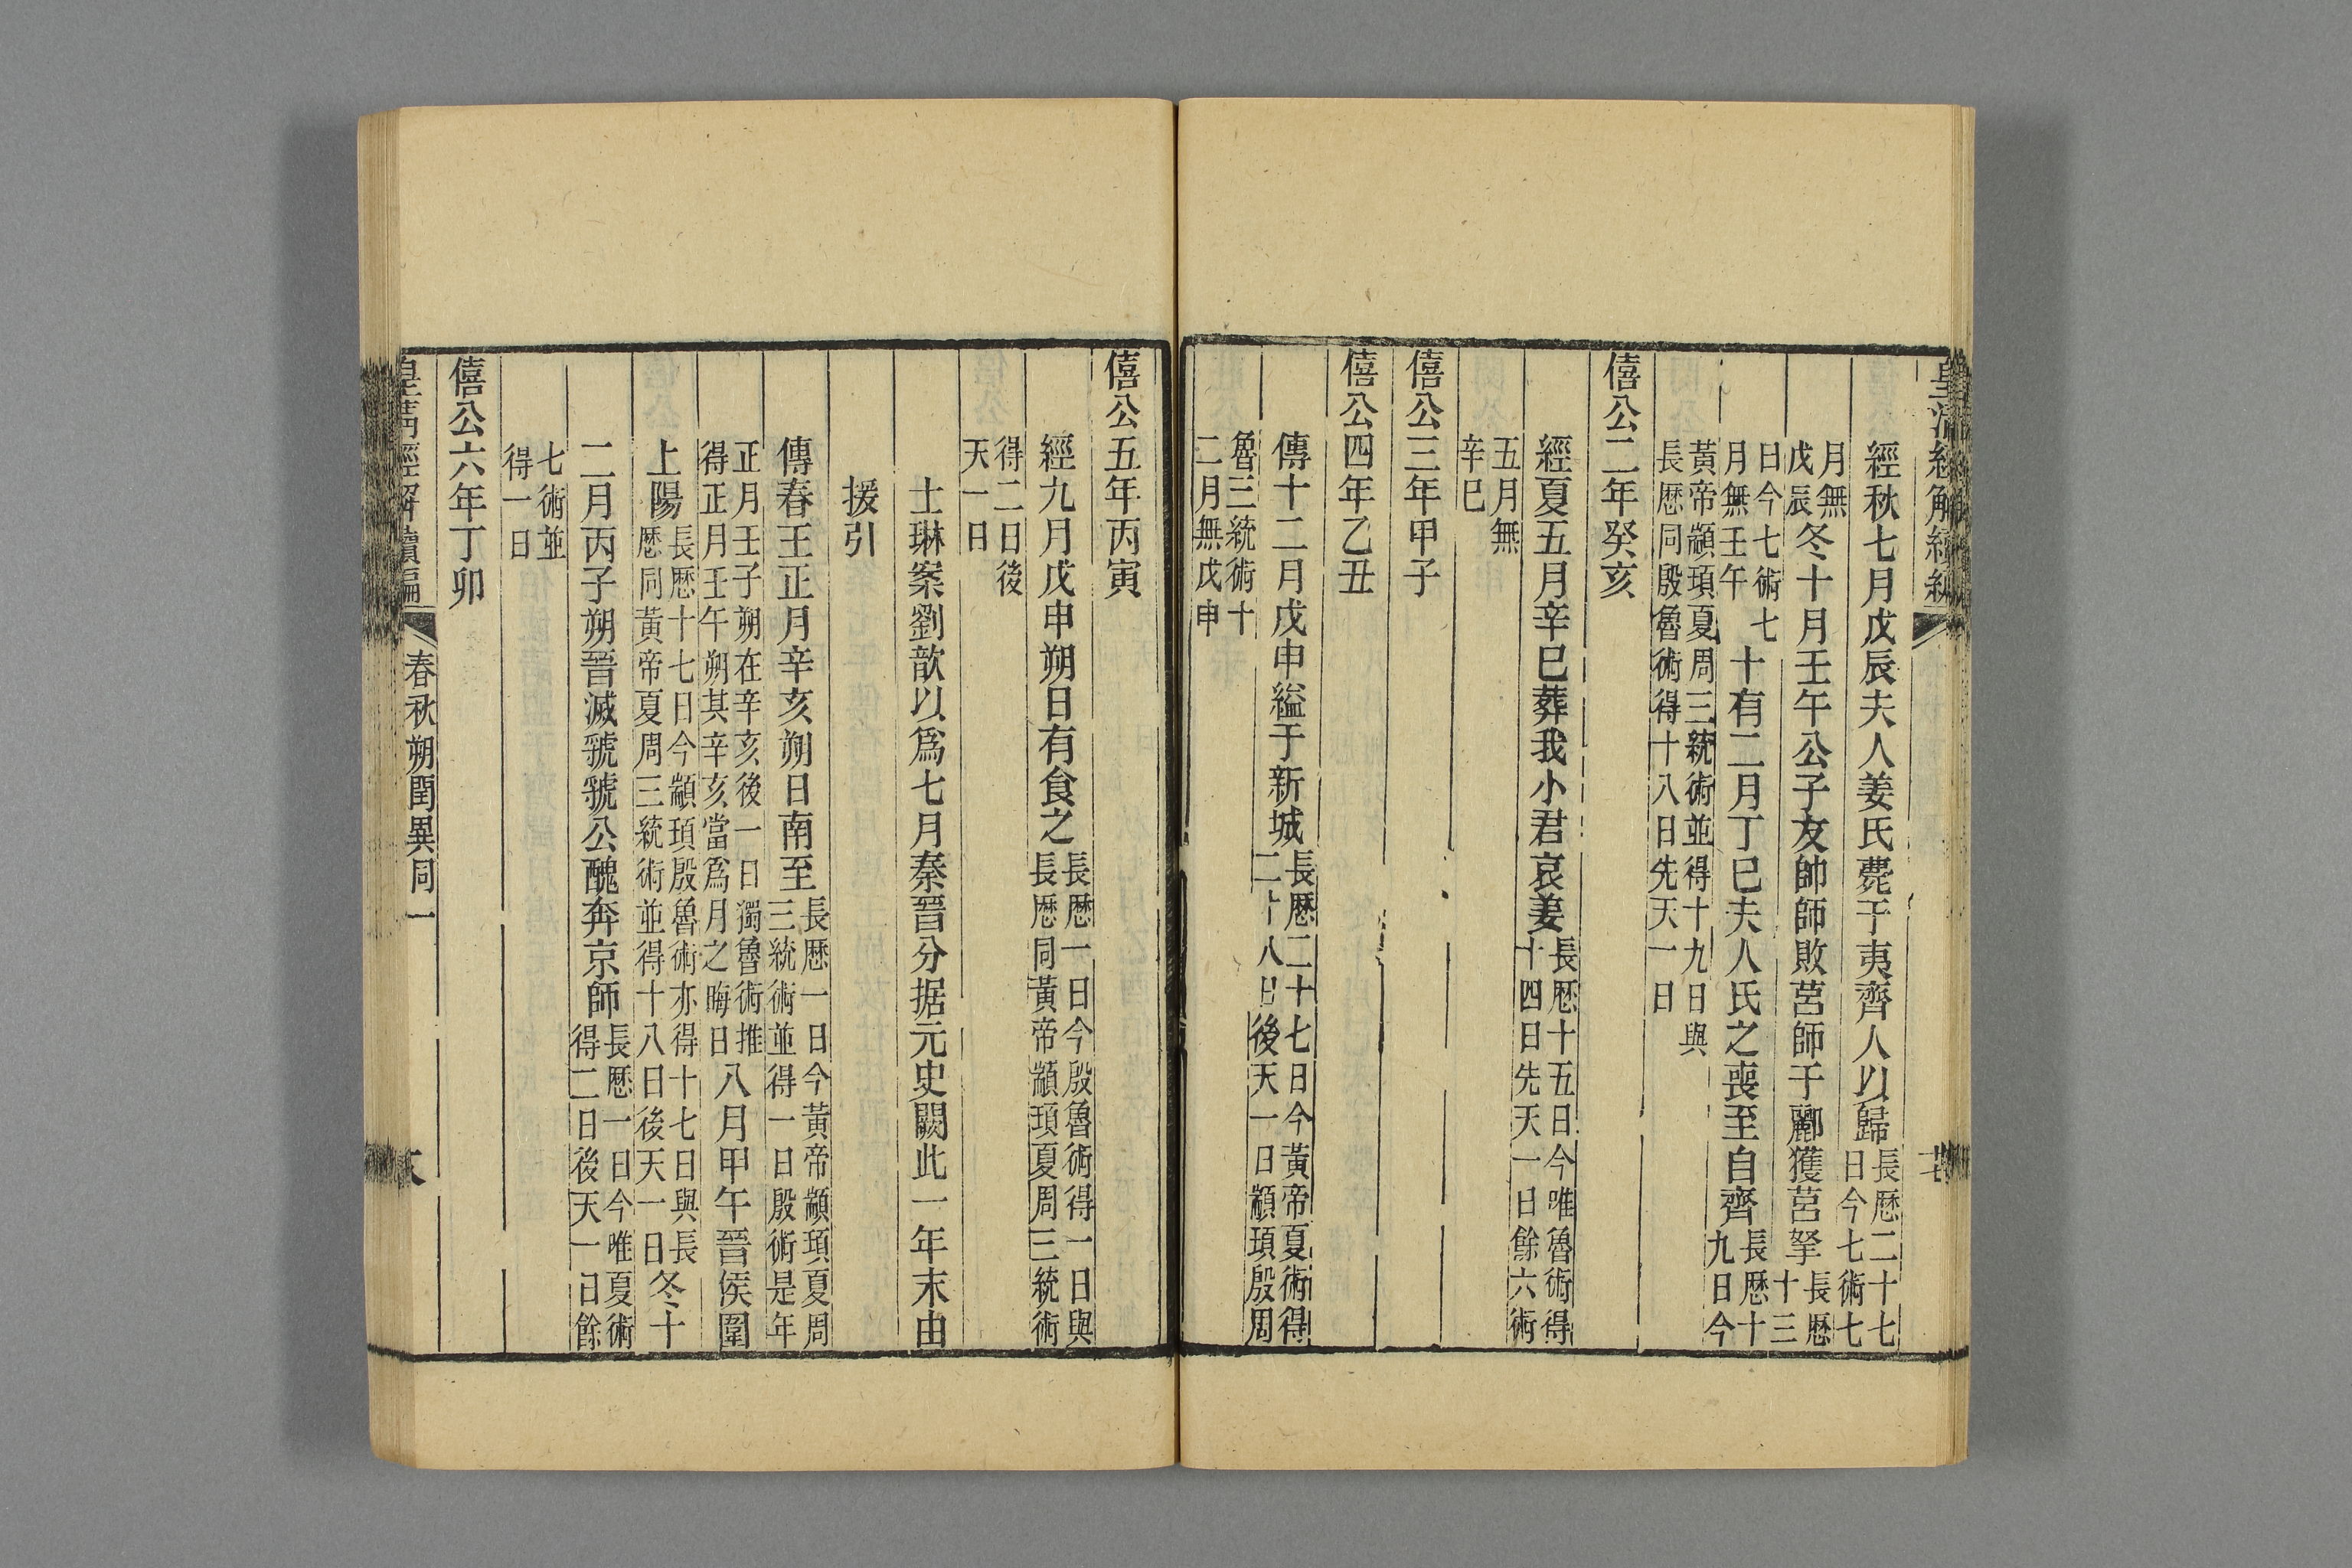 皇清經解續編
經秋七月戊辰夫人姜氏薨于夷齊人以歸長歷二十七日今七術七
月無戊辰冬十月壬午公子友帥師敗莒師于酈獲莒挐長歷十三
日今七術七月無壬午十有二月丁巳夫人氏之喪至自齊長歷十九日今
黃帝顓頊夏周三統術並得十九日與長歷同殷魯術得十八日先天一日
僖公二年癸亥
經夏五月辛巳葬我小君哀姜長歷十五日今唯魯術得十四日先天一日餘六術
五月無辛巳
僖公三年甲子
僖公四年乙丑
傳十二月戊申縊于新城長歷二十七日今黃帝夏術得二十八日後天一日顓頊殷周
魯三統術十二月無戊申
僖公五年丙寅
經九月戊申朔日有食之長歷一日今殷魯術得一日與長歷同黃帝顓頊夏周三統術
得二日後天一日
士琳案劉歆以爲七月秦晉分据元史闕此一年末由
援引
傳春王正月辛亥朔日南至長歷一日今黃帝顓頊夏周三統術並得一日殷術是年
正月壬子朔在辛亥後一日獨魯術推得正月壬午朔其辛亥當爲月之晦日八月甲午晉侯圍
上陽長歷十七日今顓頊殷魯術亦得十七日與長歷同黃帝夏周三統術並得十八日後天一日冬十
二月丙子朔晉滅虢虢公醜奔京師長歷一日今唯夏術得二日後天一日餘
七術並得一日
僖公六年丁卯
皇清經解續編
春秋朔閏異同一